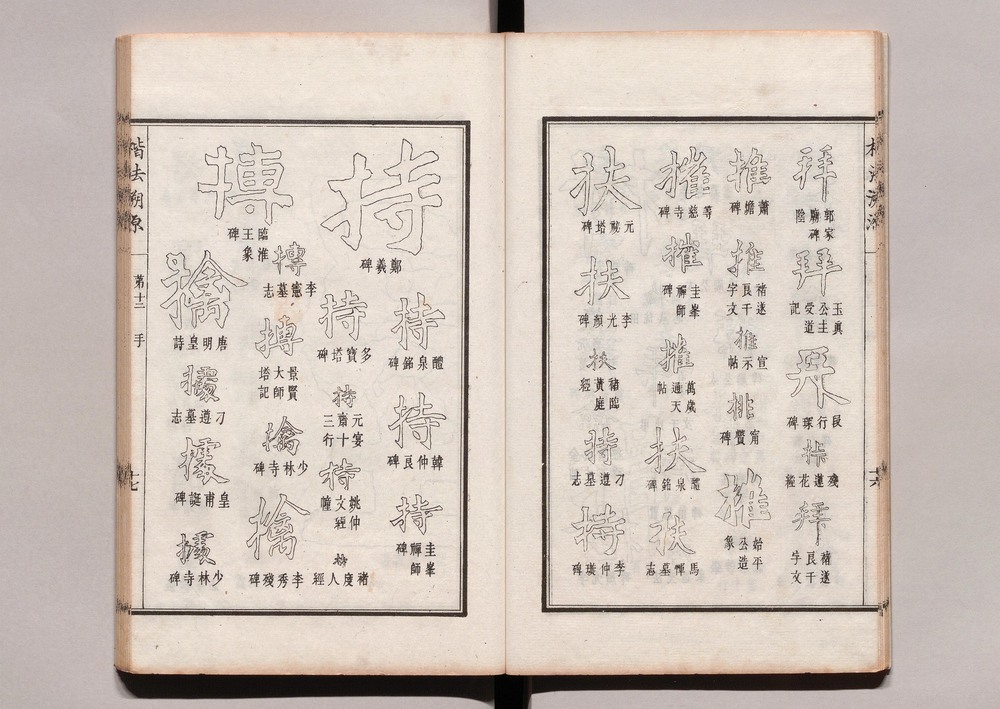 拜
郭家廟碑陰
拜
玉真公主受道記
拜
段行琛碑
拜
殘蓮花經
拜
褚遂良千字文
推
蕭憺碑
推
褚遂良千字文
推
宣示帖
排
甯贙碑
推
始平公造象
摧
等慈寺碑
摧
圭峯禪師碑
摧
萬歲通天帖
扶
醴泉銘碑
扶
馬惲墓志
扶
元祕塔碑
扶
李光顏碑
扶
褚臨黃庭經
持
刁遵墓志
持
李仲璇碑
持
鄭羲碑
持
醴泉銘碑
持
韓仲良碑
持
圭峯禪師碑
持
多寶塔碑
持
元宴齋三十行
持
姚仲文經幢
持
褚度人經
搏
臨淮王象碑
搏
李憲墓志
搏
景賢大師塔記
擒
少林寺碑
擒
李秀殘碑
擒
唐明皇詩
據
刁遵墓志
據
皇甫誕碑
據
少林寺碑
楷法溯源
第十二
手
十七